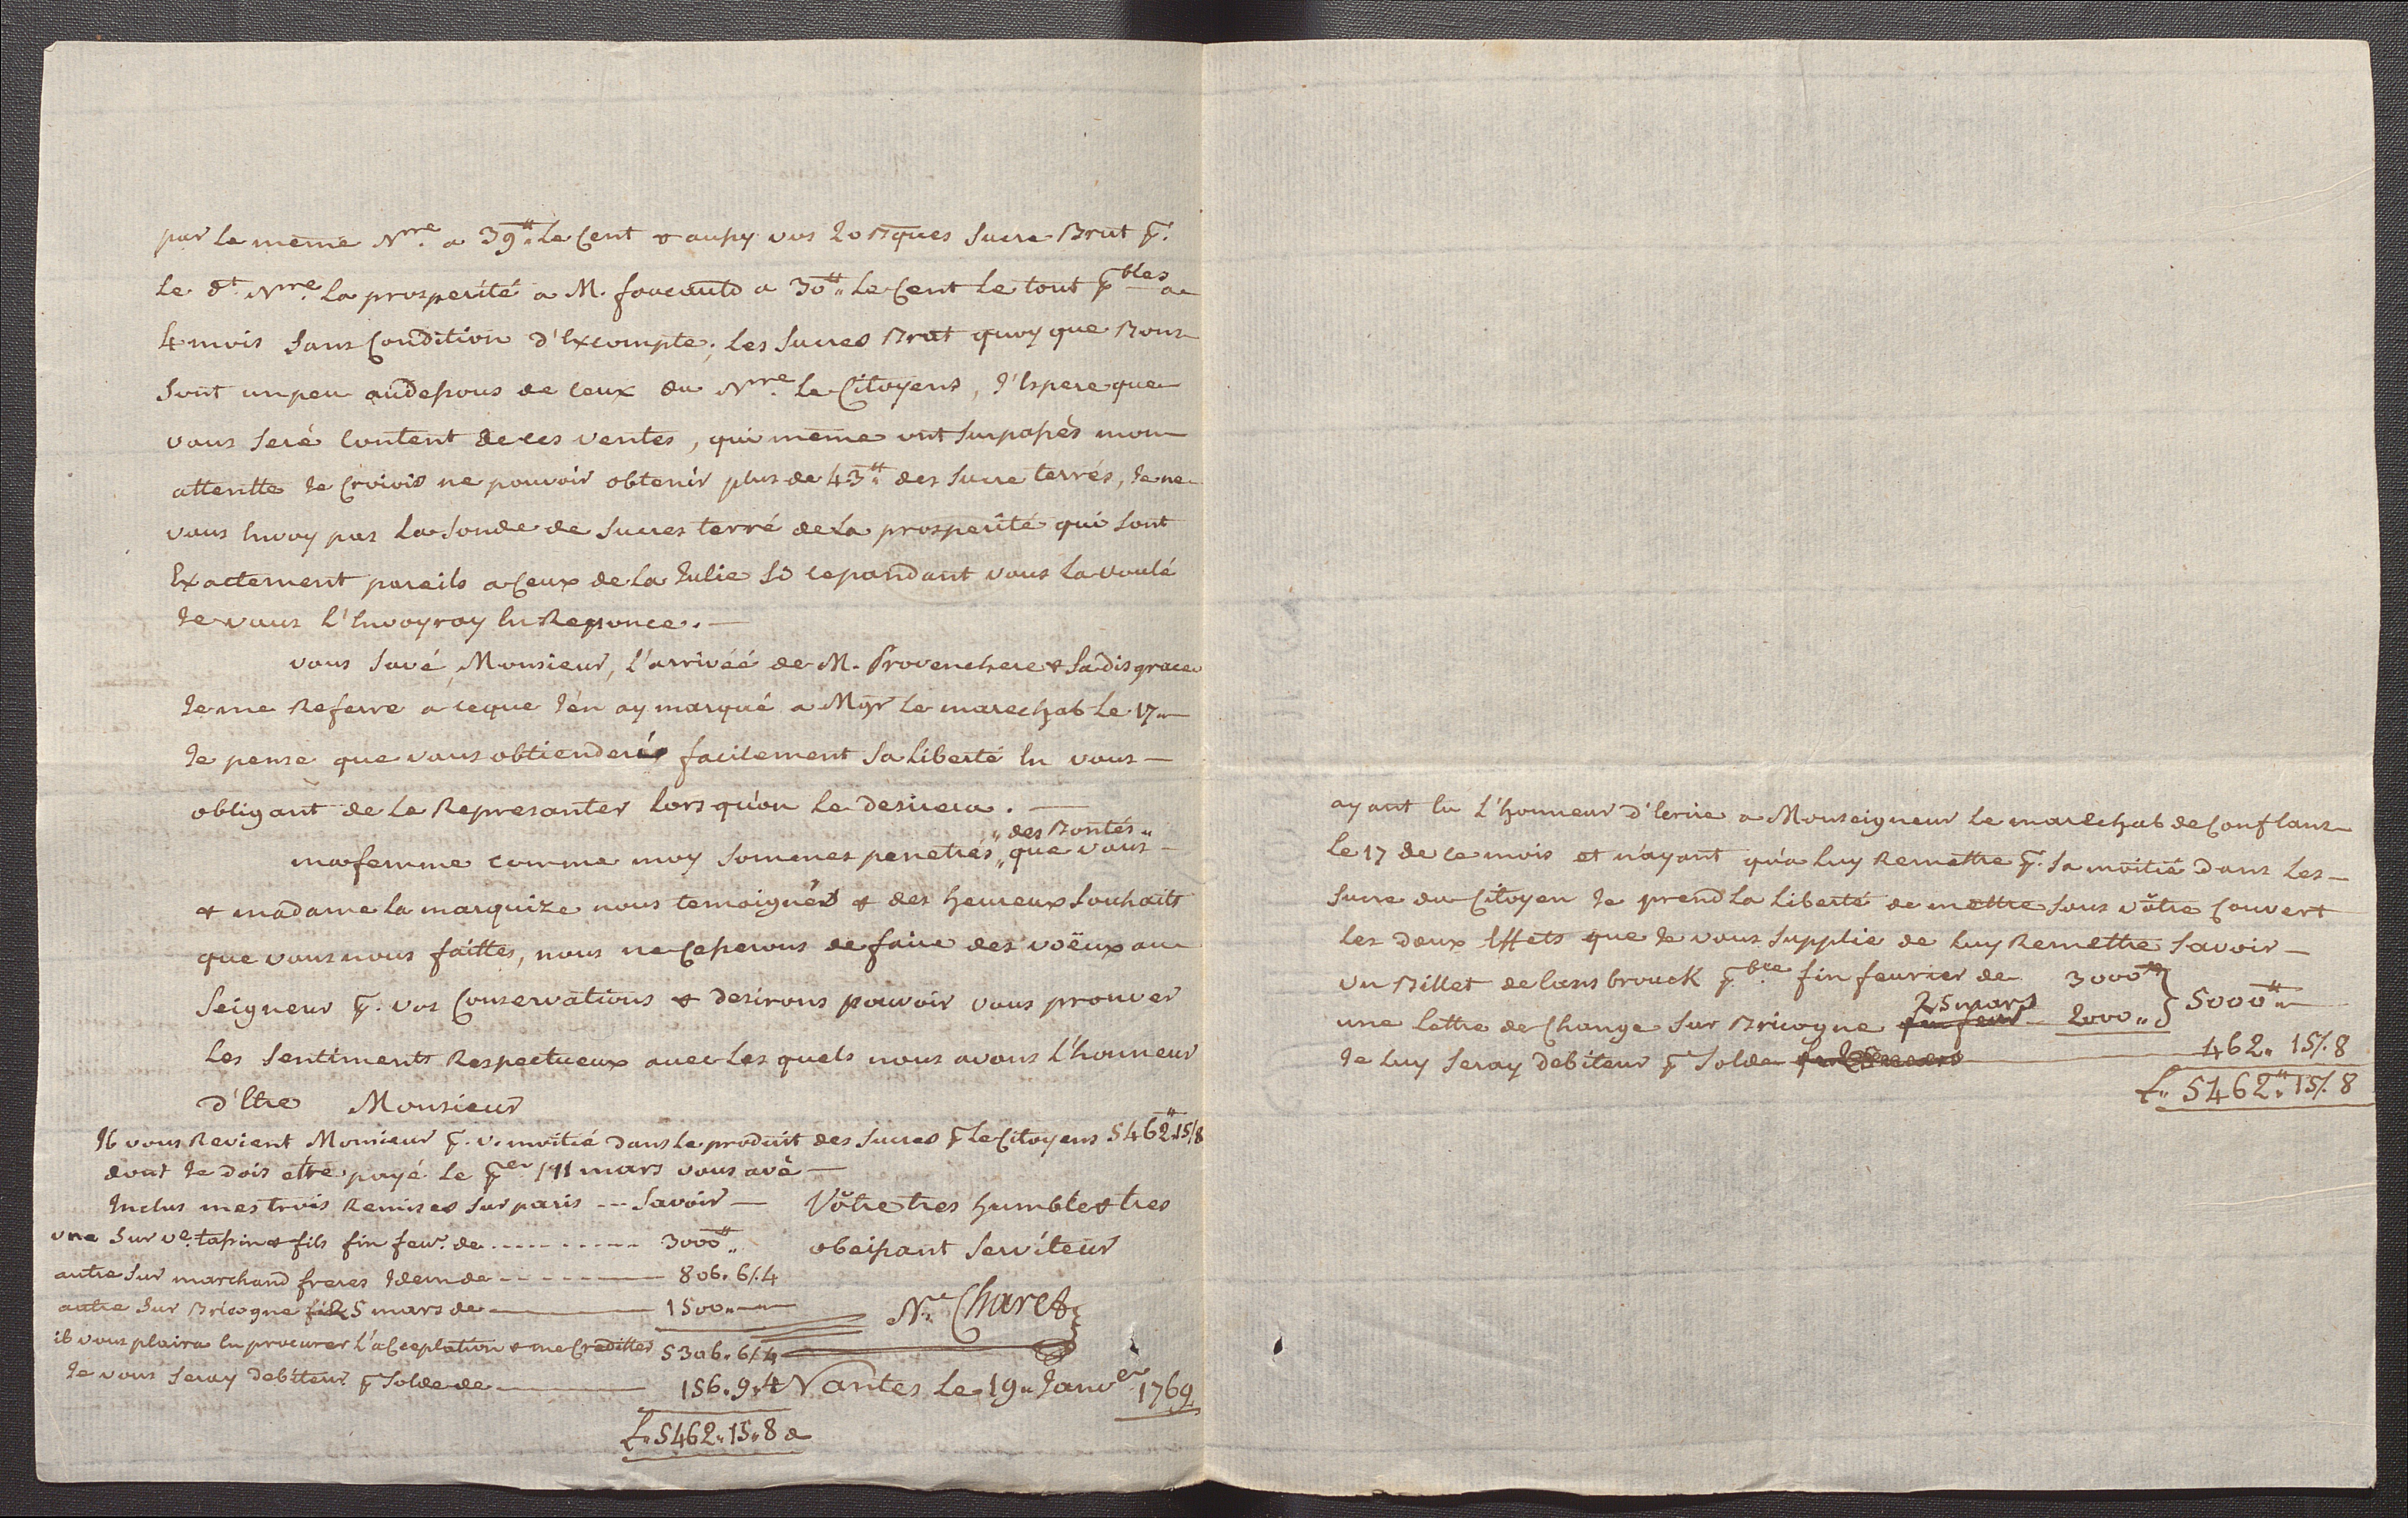 par le meme Nre. a 39#. le Cent & aussy vos 20 Bques sucre Brut p.
le dt. Nre. la prosperité a M. foucault a 30#. le Cent le tout pbles a
4 mois sans Condition d'Excompte; les sucres Brut quoy que Bons
sont un peu audessous de ceux du Nre. le Citoyens, J'Espere que
vous seré Content de ces ventes, qui meme ont surpassés mon
attentte Je Croiois ne pouvoir obtenir plus de 43#. des sucre terrés, Je ne
vous Envoy pas la sonde de sucres terré de la prosperité qui sont
Exactement pareils a Ceux de la Julie si cepandant vous la voulé
Je vous l'Envoyray En Reponce. —
vous savé, Monsieur, l'arrivéé de M. Provenchere & sa disgrace
Je me Referre a ceque J'en ay marqué a Mgr le marechal le 17 —
Je pense que vous obtienderés facilement sa liberté En vous —
obligant de le Represanter lors qu'on le desirera. —
" des Bontés "
ma femme comme moy sommes penetrés " que vous —
& madame la marquize nous temoignés & des heureux souhaits
que vous nous faittes, nous ne Cesserons de faire des voëux au
seigneur p. vos Conservations & desirons pouvoir vous prouver
les sentiments Respectueux avec les quels nous avons l'honneur
d'Etre Monsieur
Il vous Revient Monsieur p. v. moitié dans le produit des sucres p le Citoyens 5462#.15/8
dont Je dois etre payé le per /11 mars vous avé —
Inclus mes trois Remises sur paris --- Savoir —
une sur ve. tassin & fils fin fevr. de ---------- 3000#.
autre sur marchand freres Idem de ---------- 806. 6/.4
autre sur Bricogne 25 mars de ———— 1500. —
il vous plaira En procurer l'acceptation & me Crediller 5306. 6/.4
Je vous seray debiteur p solde de ———— 156. 9. 4
£. 5462. 15. 8 d
Vôtre tres humble & tres
obeissant serviteur
Ne. Charet
Nantes le 19. Janver 1769
ayant Eu l'honneur d'Ecrire a Monseigneur le marechal de Conflans
le 17 de ce mois et n'ayant qu'a luy Remettre p. sa moitié dans les —
sucre du Citoyen Je prend la liberté de mettre sous vôtre Couvert
les deux Effets que Je vous supplie de luy Remettre Savoir —
un Billet de lansbrouck pble fin feurier de 3000# } 5000#. —
25 mars
une lettre de Change sur Bricogne fin feur 2000.. }
Je luy seray debiteur p solde ———— 462. 15/. 8
£.. 5462#. 15/. 8